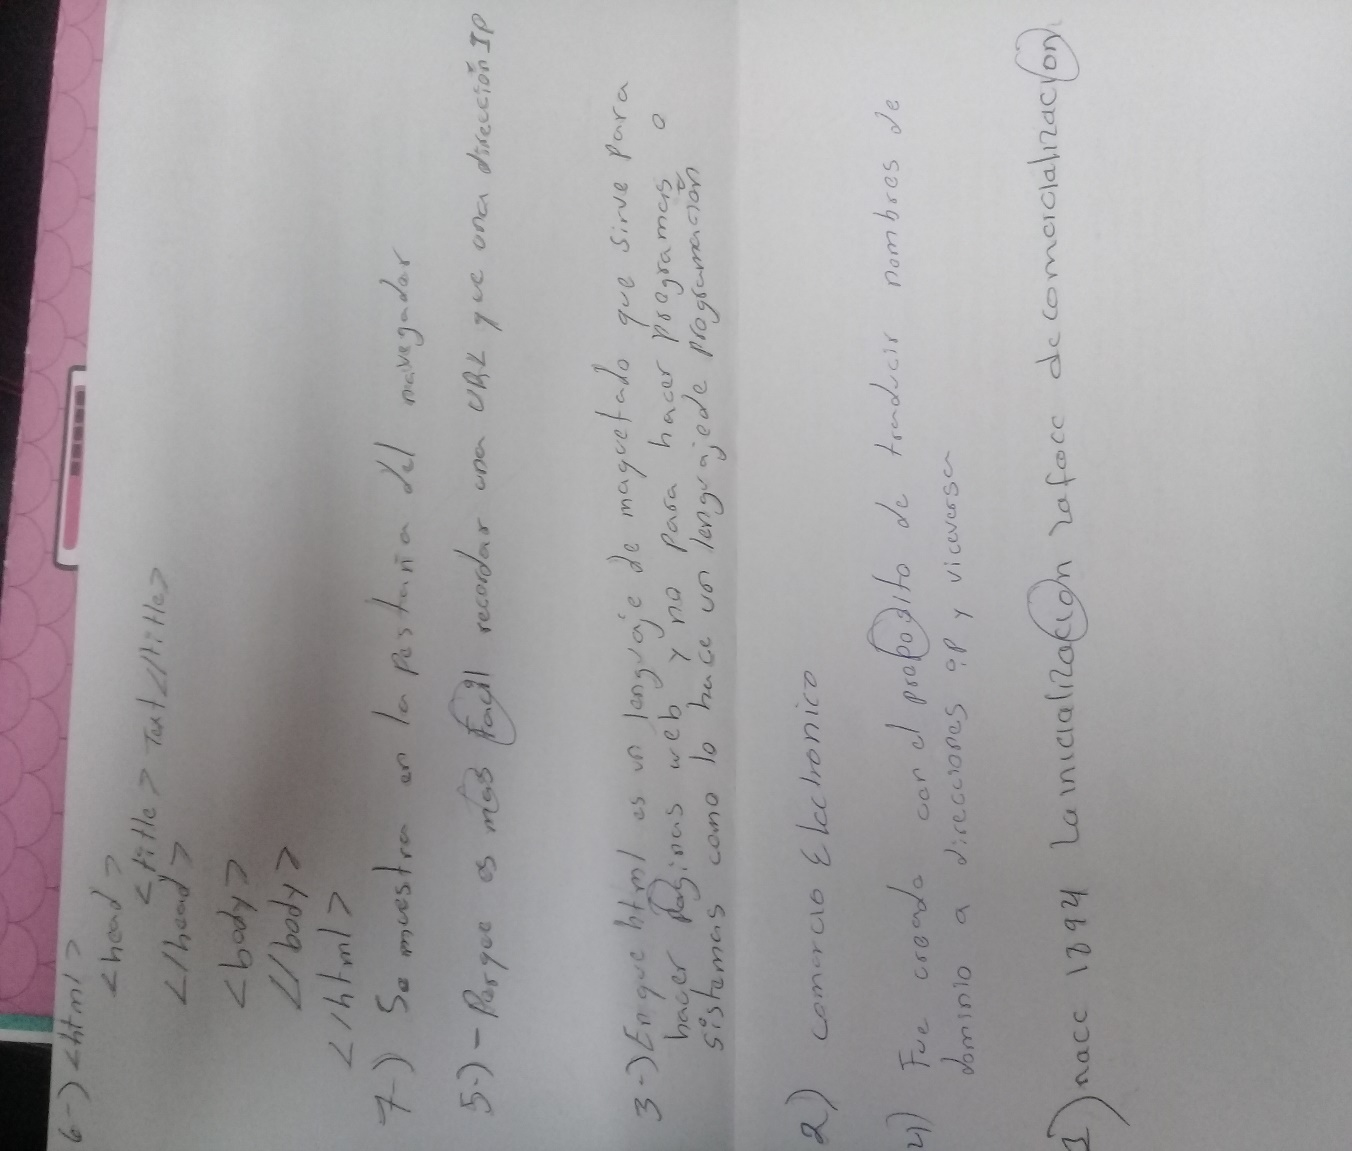 6-) <html>
<head>
<title> Text </title>
</head>
<body>
</body>
</html>
7-) Se muestra en la pestaña del navegador
5-) - Porque es mas facil recordar una URL que una dirección IP
3-) En que html es un lenguaje de maquetado que sirve para
hacer paginas web y no para hacer programas o
sistemas como lo hace un lenguaje de programación
2) comercio Electronico
4) Fue creado con el proposito de traducir nombres de
dominio a direcciones ip y viceversa
1) nace 1994 la inicialización la face de comercialización